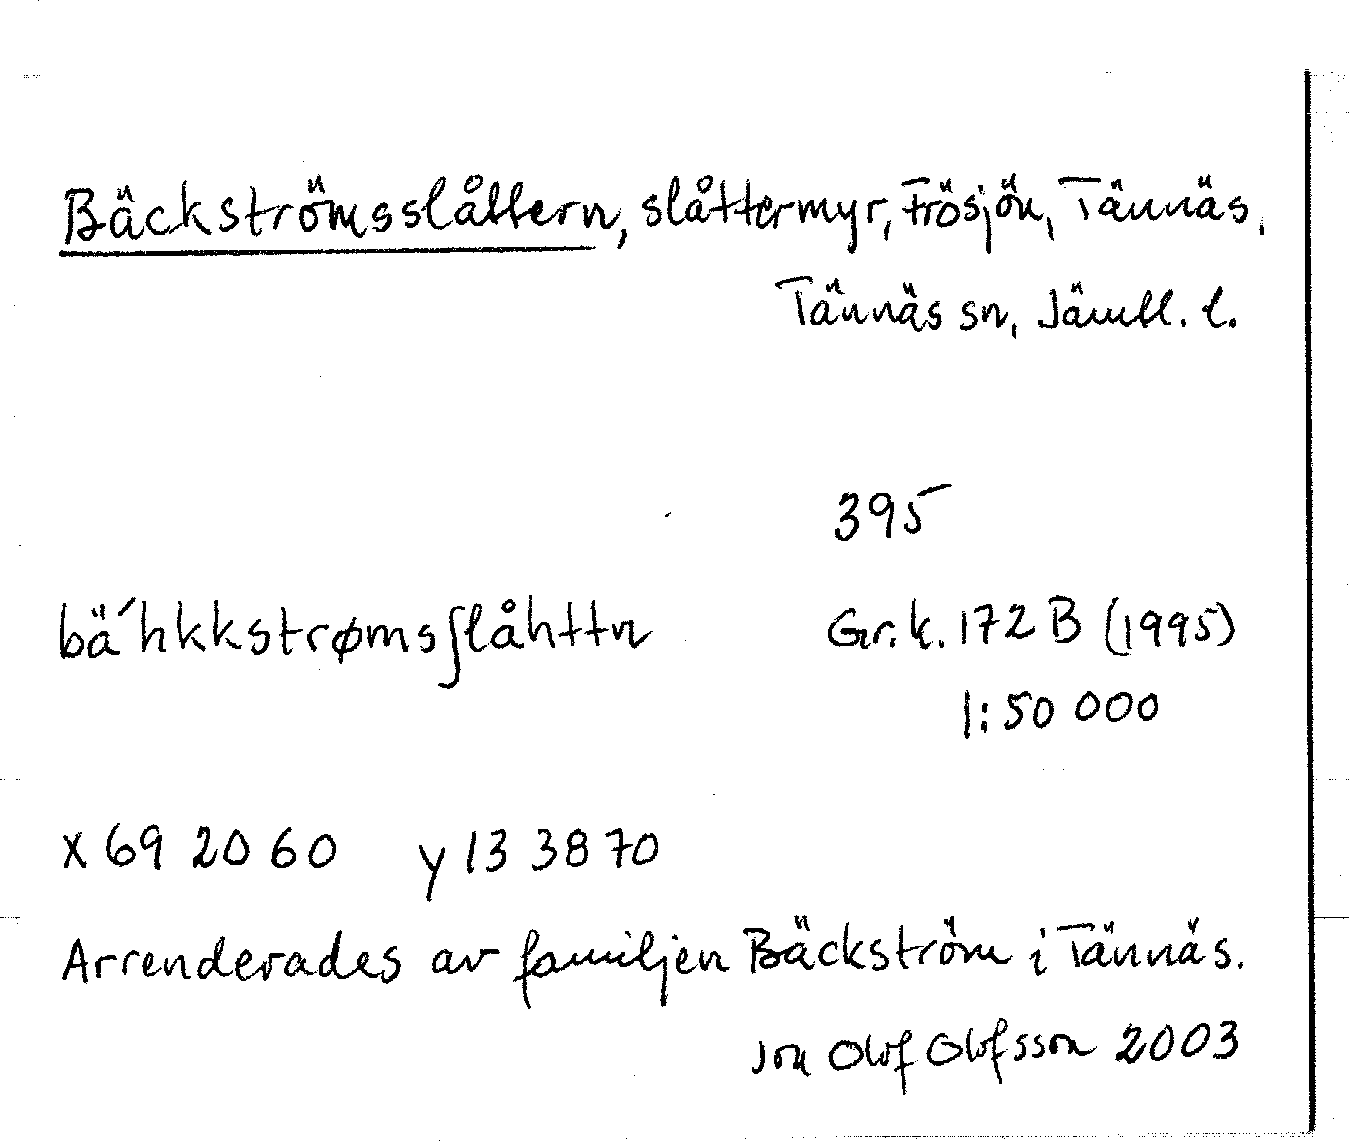 Bäckströmsslåttern, slåttermyr, Frösjön, Tännäs,
Tännäs sn, Jämtl. l.
395
bä´hkkstrømsʃlåhttn
Gr.k. 172 B (1995)
1:50 000
x 69 20 60 y 13 38 70
Arrenderades av familjen Bäckström i Tännäs.
Jon Olof Olofsson 2003